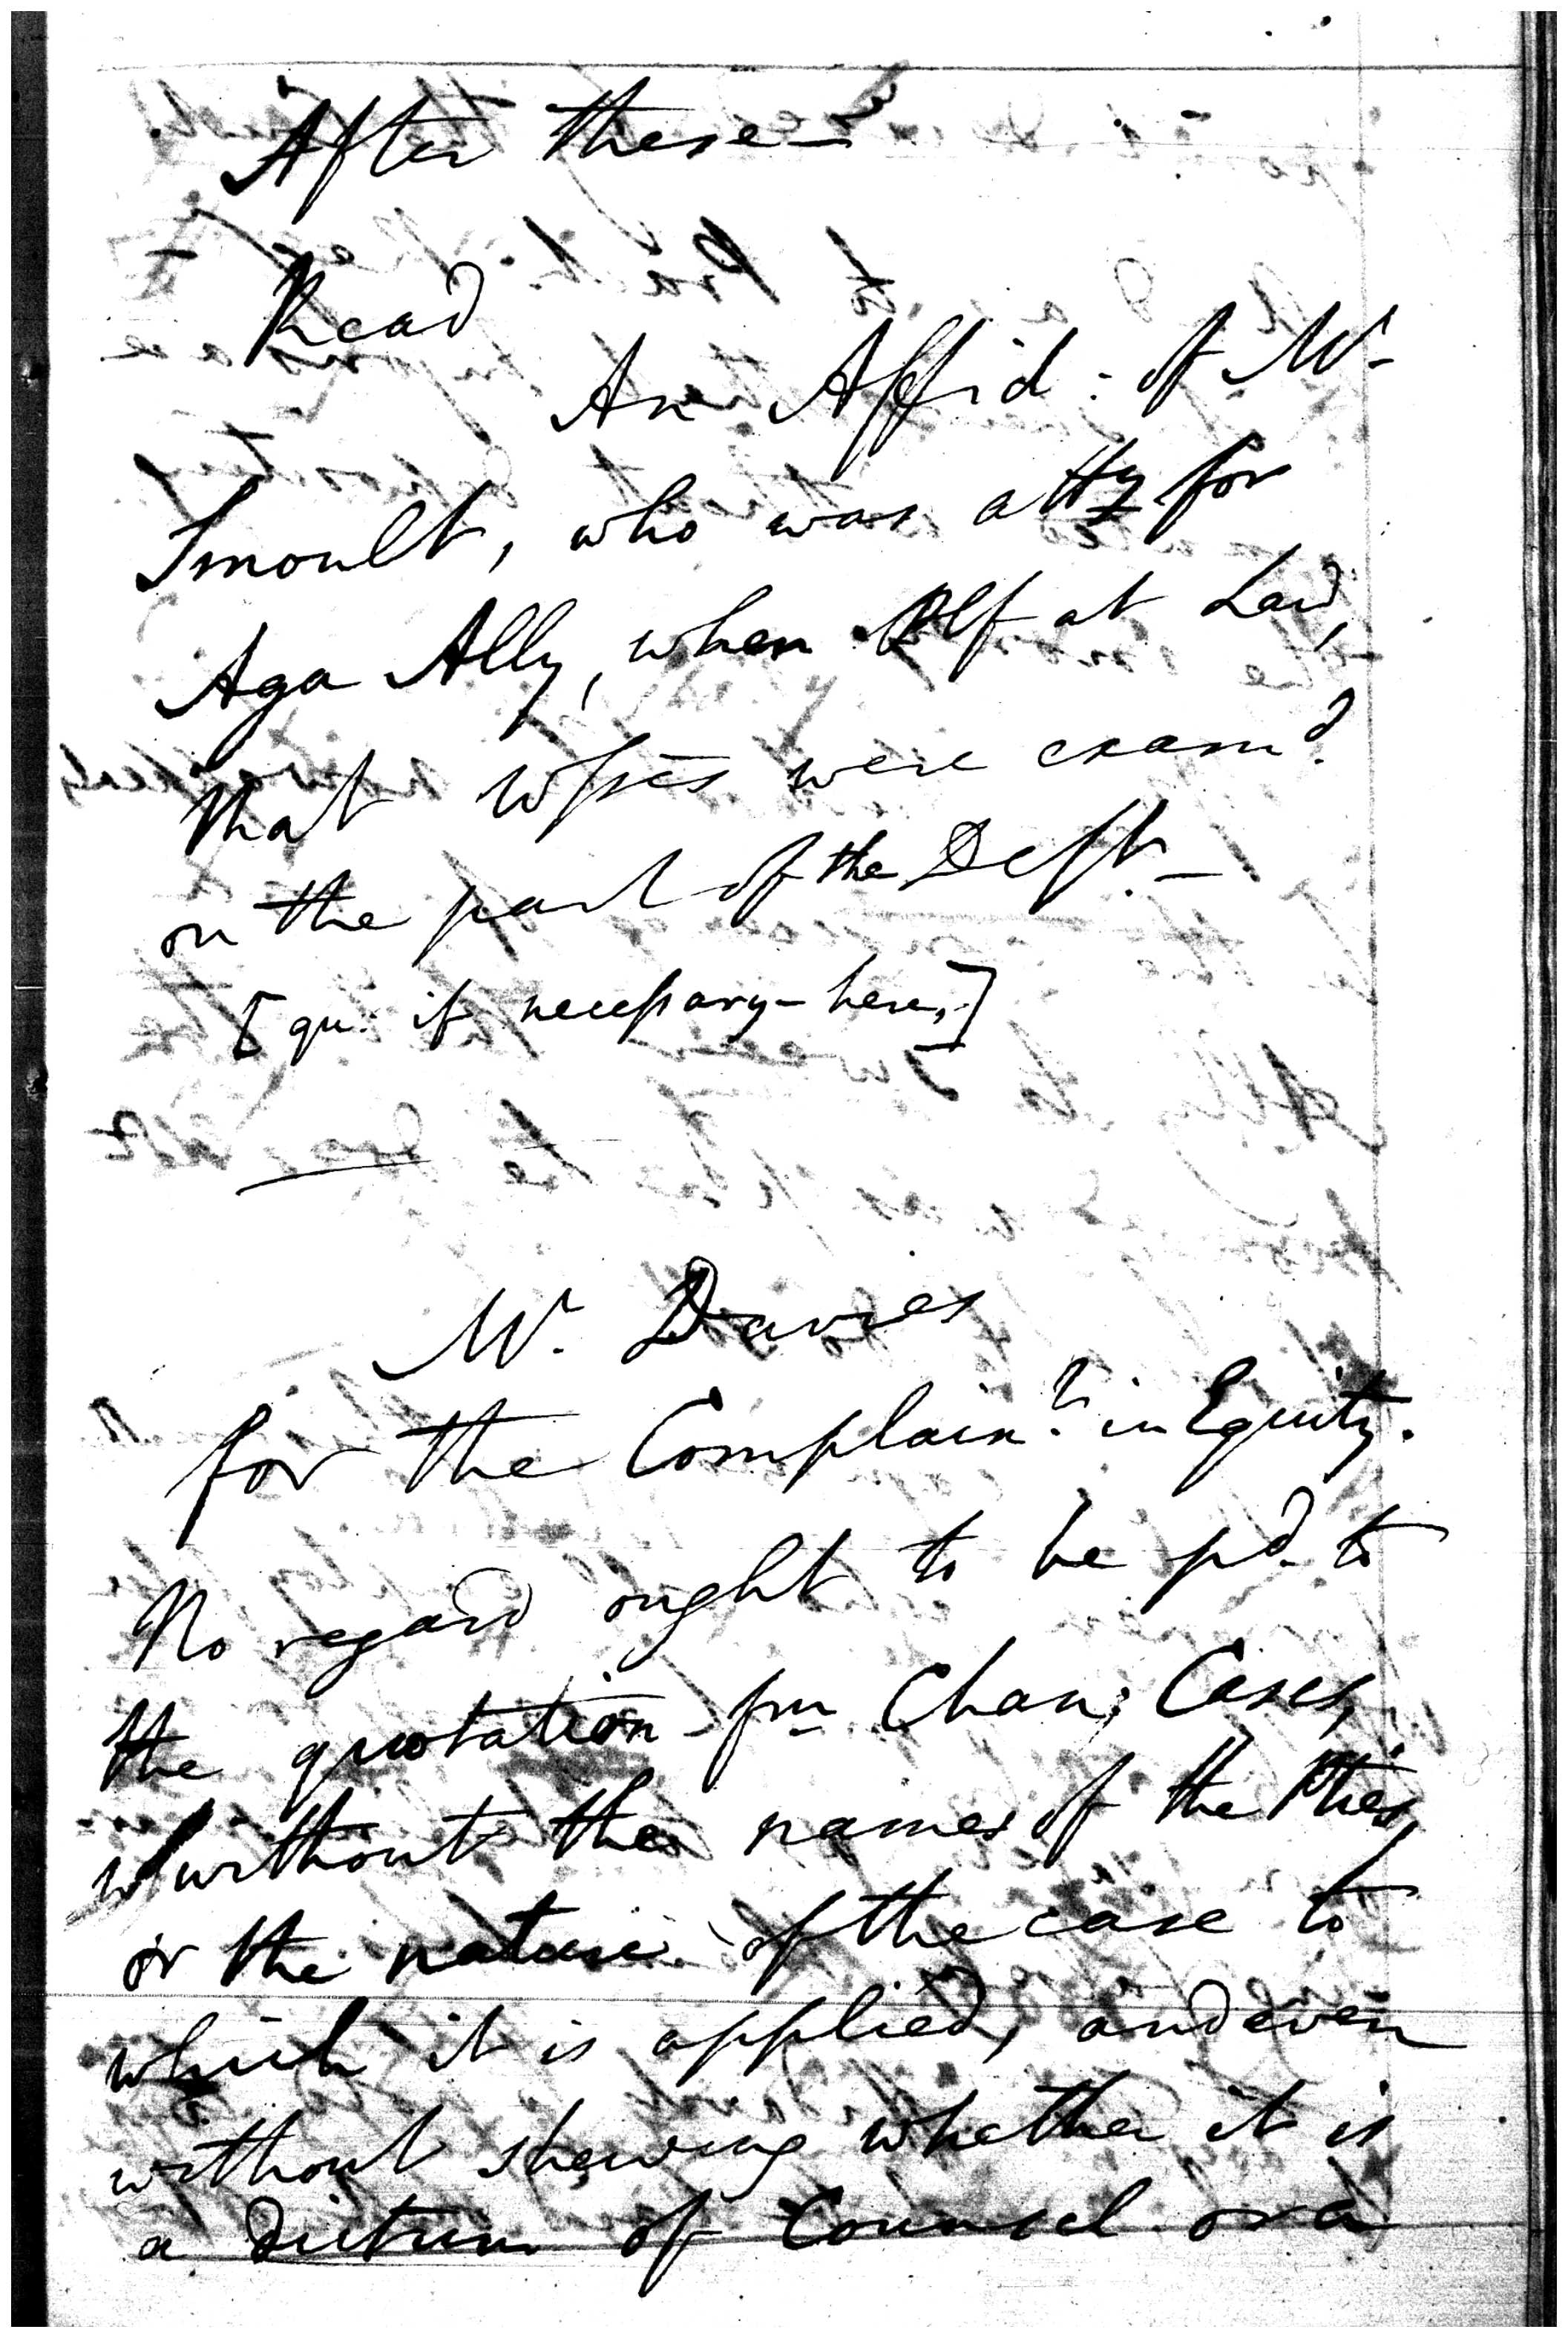 After these —
Read
An Affid: of Mr
Smoult, who was atty for
Aga Ally, when Plf at Law,
that wsses were examd
on the part of the Deft —
[qu: if necessary — here.]
Mr. Davies
for the Complaint in Equity.
No regard ought to be pd to
the quotation fm Chan: Cases,
without the names of the Pties,
or the nature of the case to
which it is applied, and even
without shewing whether it is
a dictum of Counsel or a